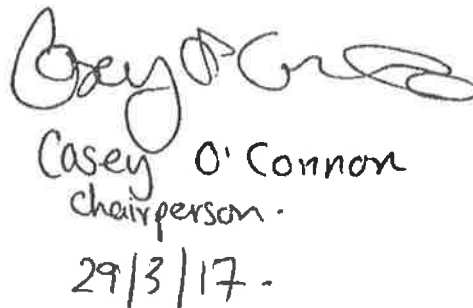 Casey O'Con
Casey O'Connon
chairperson.
29/3/17.